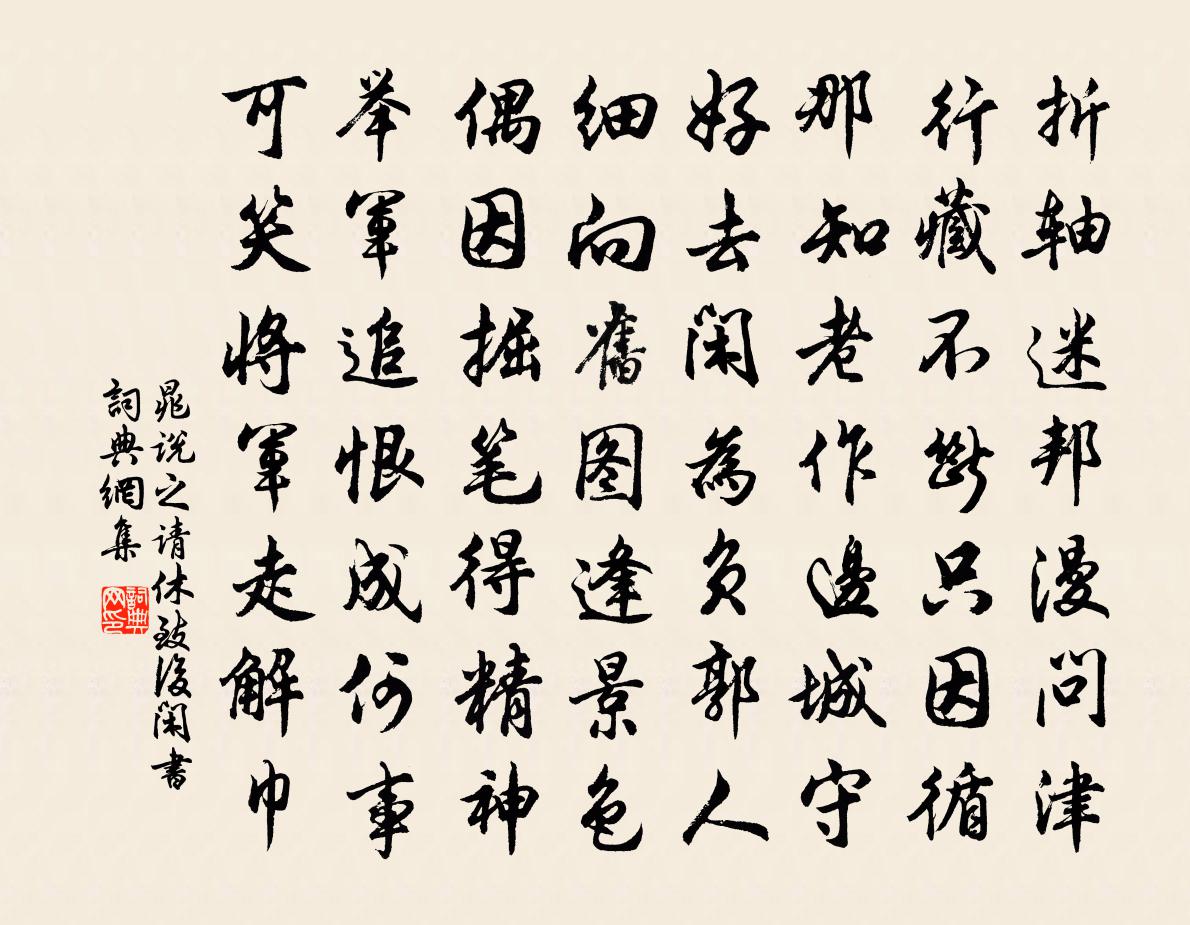 折轴迷邦漫问津
行藏不断只因循
那知老作邊城守
好去閑為负郭人
细向舊图逢景色
偶因掘笔得精神
举军追恨成何事
可笑将军走解巾
晁说之请休致後閑書
詞典網集
詞典网印